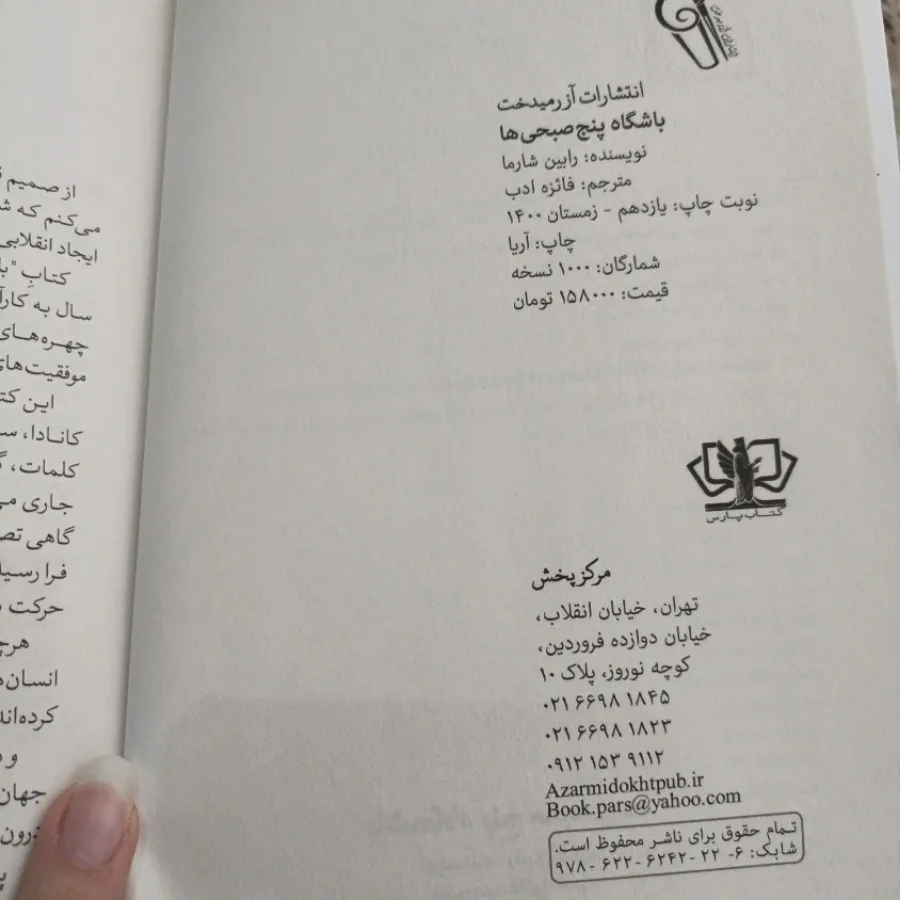 انتشارات آزرمیدخت
باشگاه پنج صبحی‌ها
نویسنده: رابین شارما
مترجم: فائزه ادب
نوبت چاپ: یازدهم - زمستان ۱۴۰۰
چاپ: آریا
شمارگان: ۱۰۰۰ نسخه
قیمت: ۱۵۸۰۰۰ تومان
کتاب پارس
مرکز پخش
تهران، خیابان انقلاب،
خیابان دوازده فروردین،
کوچه نوروز، پلاک ۱۰
۰۲۱ ۶۶۹۸ ۱۸۴۵
۰۲۱ ۶۶۹۸ ۱۸۲۳
۰۹۱۲ ۱۵۳ ۹۱۱۲
Azarmidokhtpub.ir
Book.pars@yahoo.com
تمام حقوق برای ناشر محفوظ است.
شابک: ۶- ۲۲ -۶۲۴۲ -۶۲۲ -۹۷۸
از صمیم
می‌کنم که
ایجاد انقلابی
کتابِ
سال به
چهره‌های
موفقیت‌های
این
کانادا،
کلمات،
جاری
گاهی
فرا
حرکت
انسان‌
کرده‌اند
و
جهان